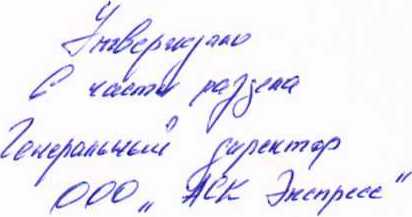 Утверждаю
в части раздела
Генеральный директор
ООО „АСК Экспресс"